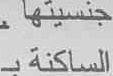 جنسيتها
الساكنة ب